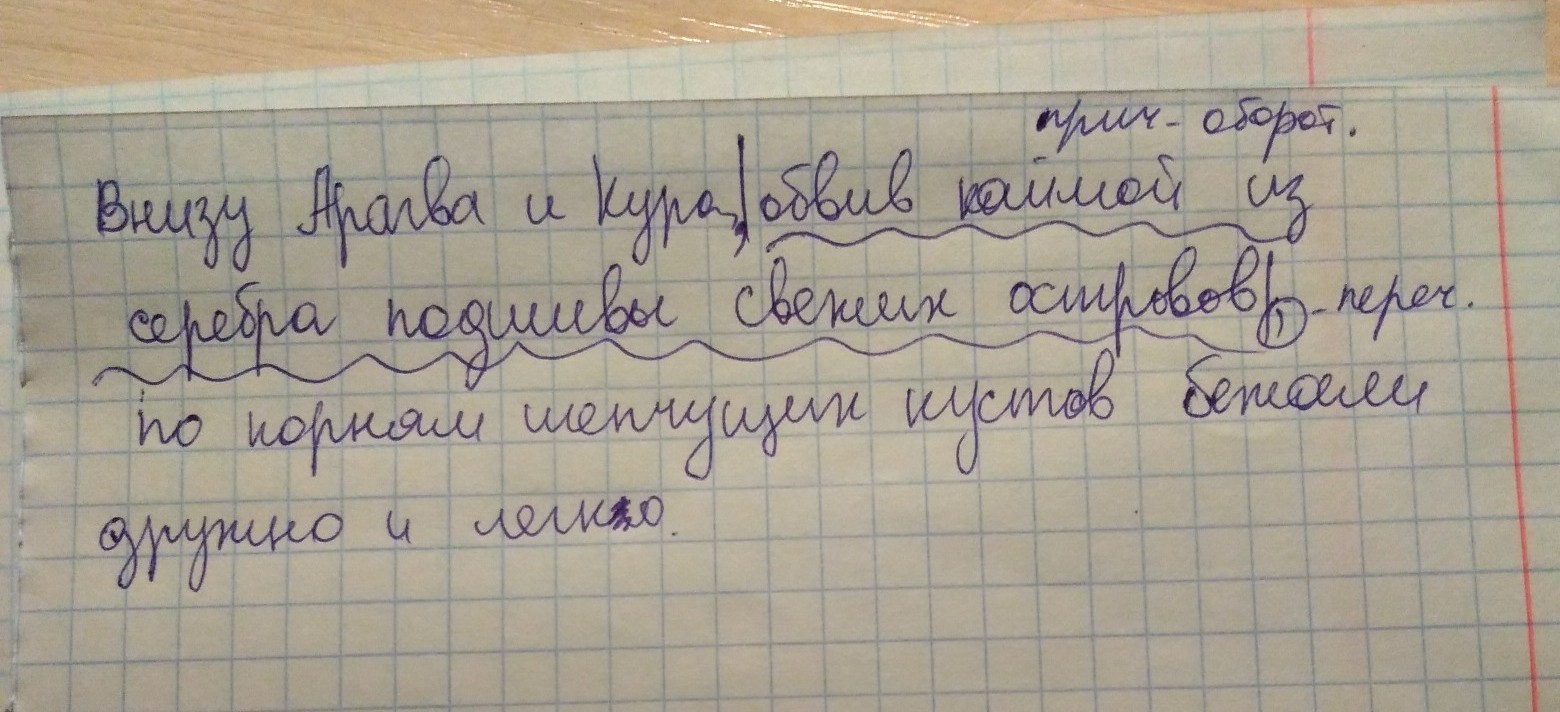 прич - оборот.
Внизу Арагва и Кура,|обвив каймой из
серебра подшивы свежих островов|, - переч.
по корням шепчущих кустов бежали
дружно и легко.